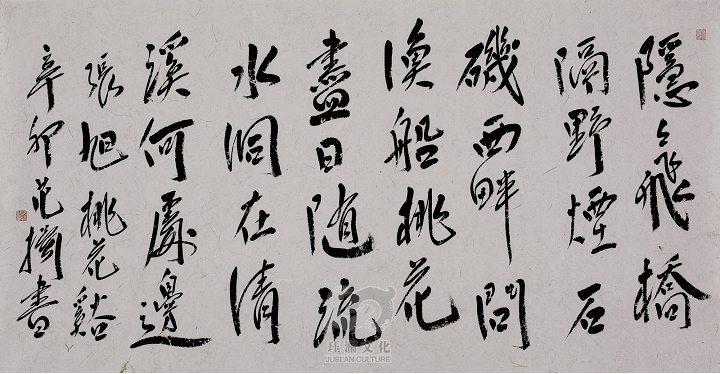 隱々飛橋
隔野煙石
磯西畔問
漁船桃花
盡日随流
水洞在清
溪何處邊
張旭桃花谿
辛卯范書
文化
JUELAN CULTURE